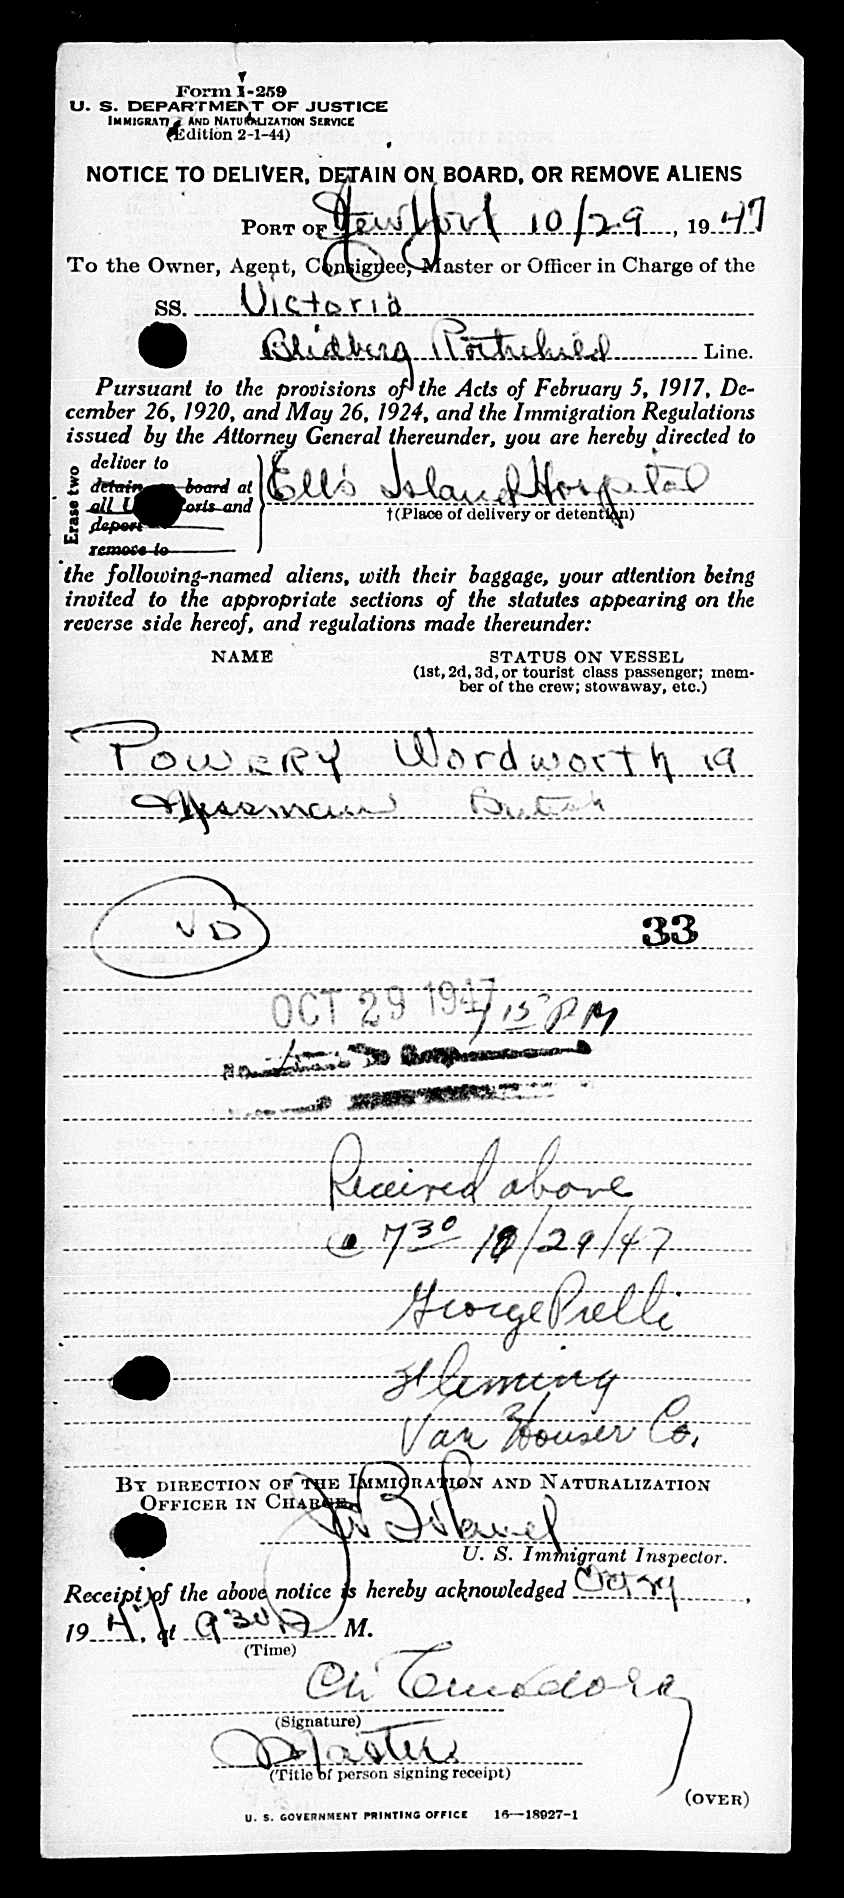 Form I-259
U. S. DEPARTMENT OF JUSTICE
IMMIGRATI AND NATURALIZATION SERVICE
(Edition 2-1-44)
NOTICE TO DELIVER, DETAIN ON BOARD, OR REMOVE ALIENS
PORT OF New York 10/29, 1947
To the Owner, Agent, Consignee, Master or Officer in Charge of the
SS. Victoria
Blidberg Rothchild Line.
Pursuant to the provisions of the Acts of February 5, 1917, De-
cember 26, 1920, and May 26, 1924, and the Immigration Regulations
issued by the Attorney General thereunder, you are hereby directed to
Erase two
deliver to
detain on board at
all U orts and
deport
remove to
Ellis Island Hospital
†(Place of delivery or detention)
the following-named aliens, with their baggage, your attention being
invited to the appropriate sections of the statutes appearing on the
reverse side hereof, and regulations made thereunder:
NAME STATUS ON VESSEL
(1st, 2d, 3d, or tourist class passenger; mem-
ber of the crew; stowaway, etc.)
POWERY Wordworth 19
Messman British
VD
33
OCT 29 1947 15 PM
Received above
@ 7 30 10/29/47
George Prelli
Fleming
Van Houser Co.
BY DIRECTION OF THE IMMIGRATION AND NATURALIZATION
OFFICER IN CHARGE
U. S. Immigrant Inspector.
Receipt of the above notice is hereby acknowledged Oct 29,
1947, at 9 30 A M.
(Time)
(Signature)
Master
(Title of person signing receipt)
(OVER)
U. S. GOVERNMENT PRINTING OFFICE 16—18927-1